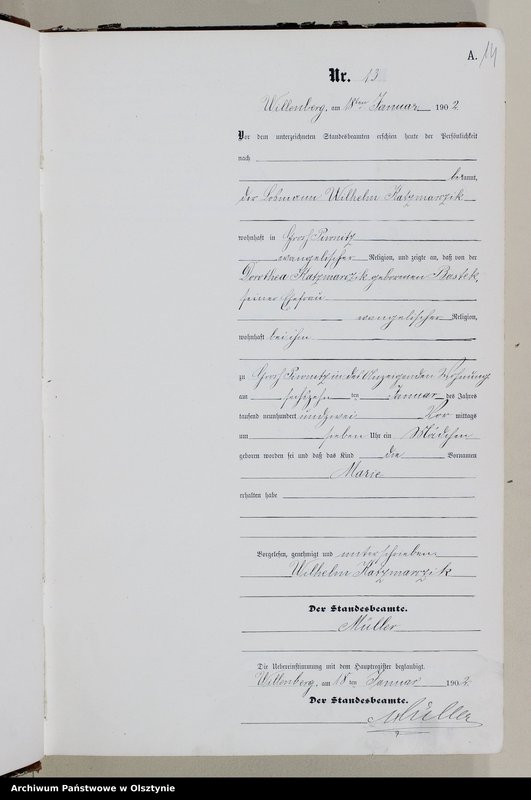 A. 14
Nr. 13
Willenberg, am 18ten Januar 1902
Vor dem unterzeichneten Standesbeamten erschien heute der Persönlichkeit
nach
bekannt,
der Losmann Wilhelm Katzmarzik
wohnhaft in Groß Piwnitz
evangelischer Religion, und zeigte an, daß von der
Dorothea Katzmarzik geborenen Bastek,
seiner Ehefrau
evangelischer Religion,
wohnhaft bei ihm
zu Groß Piwnitz in des Anzeigenden Wohnung
am sechszehn ten Januar des Jahres
tausend neunhundert und zwei Vor mittags
um sieben Uhr ein Mädchen
geboren worden sei und daß das Kind die Vornamen
Marie
erhalten habe
Vorgelesen, genehmigt und unterschrieben
Wilhelm Katzmarzik
Der Standesbeamte.
Müller
Die Uebereinstimmung mit dem Hauptregister beglaubigt.
Willenberg, am 18ten Januar 1902
Der Standesbeamte.
Müller
Archiwum Państwowe w Olsztynie